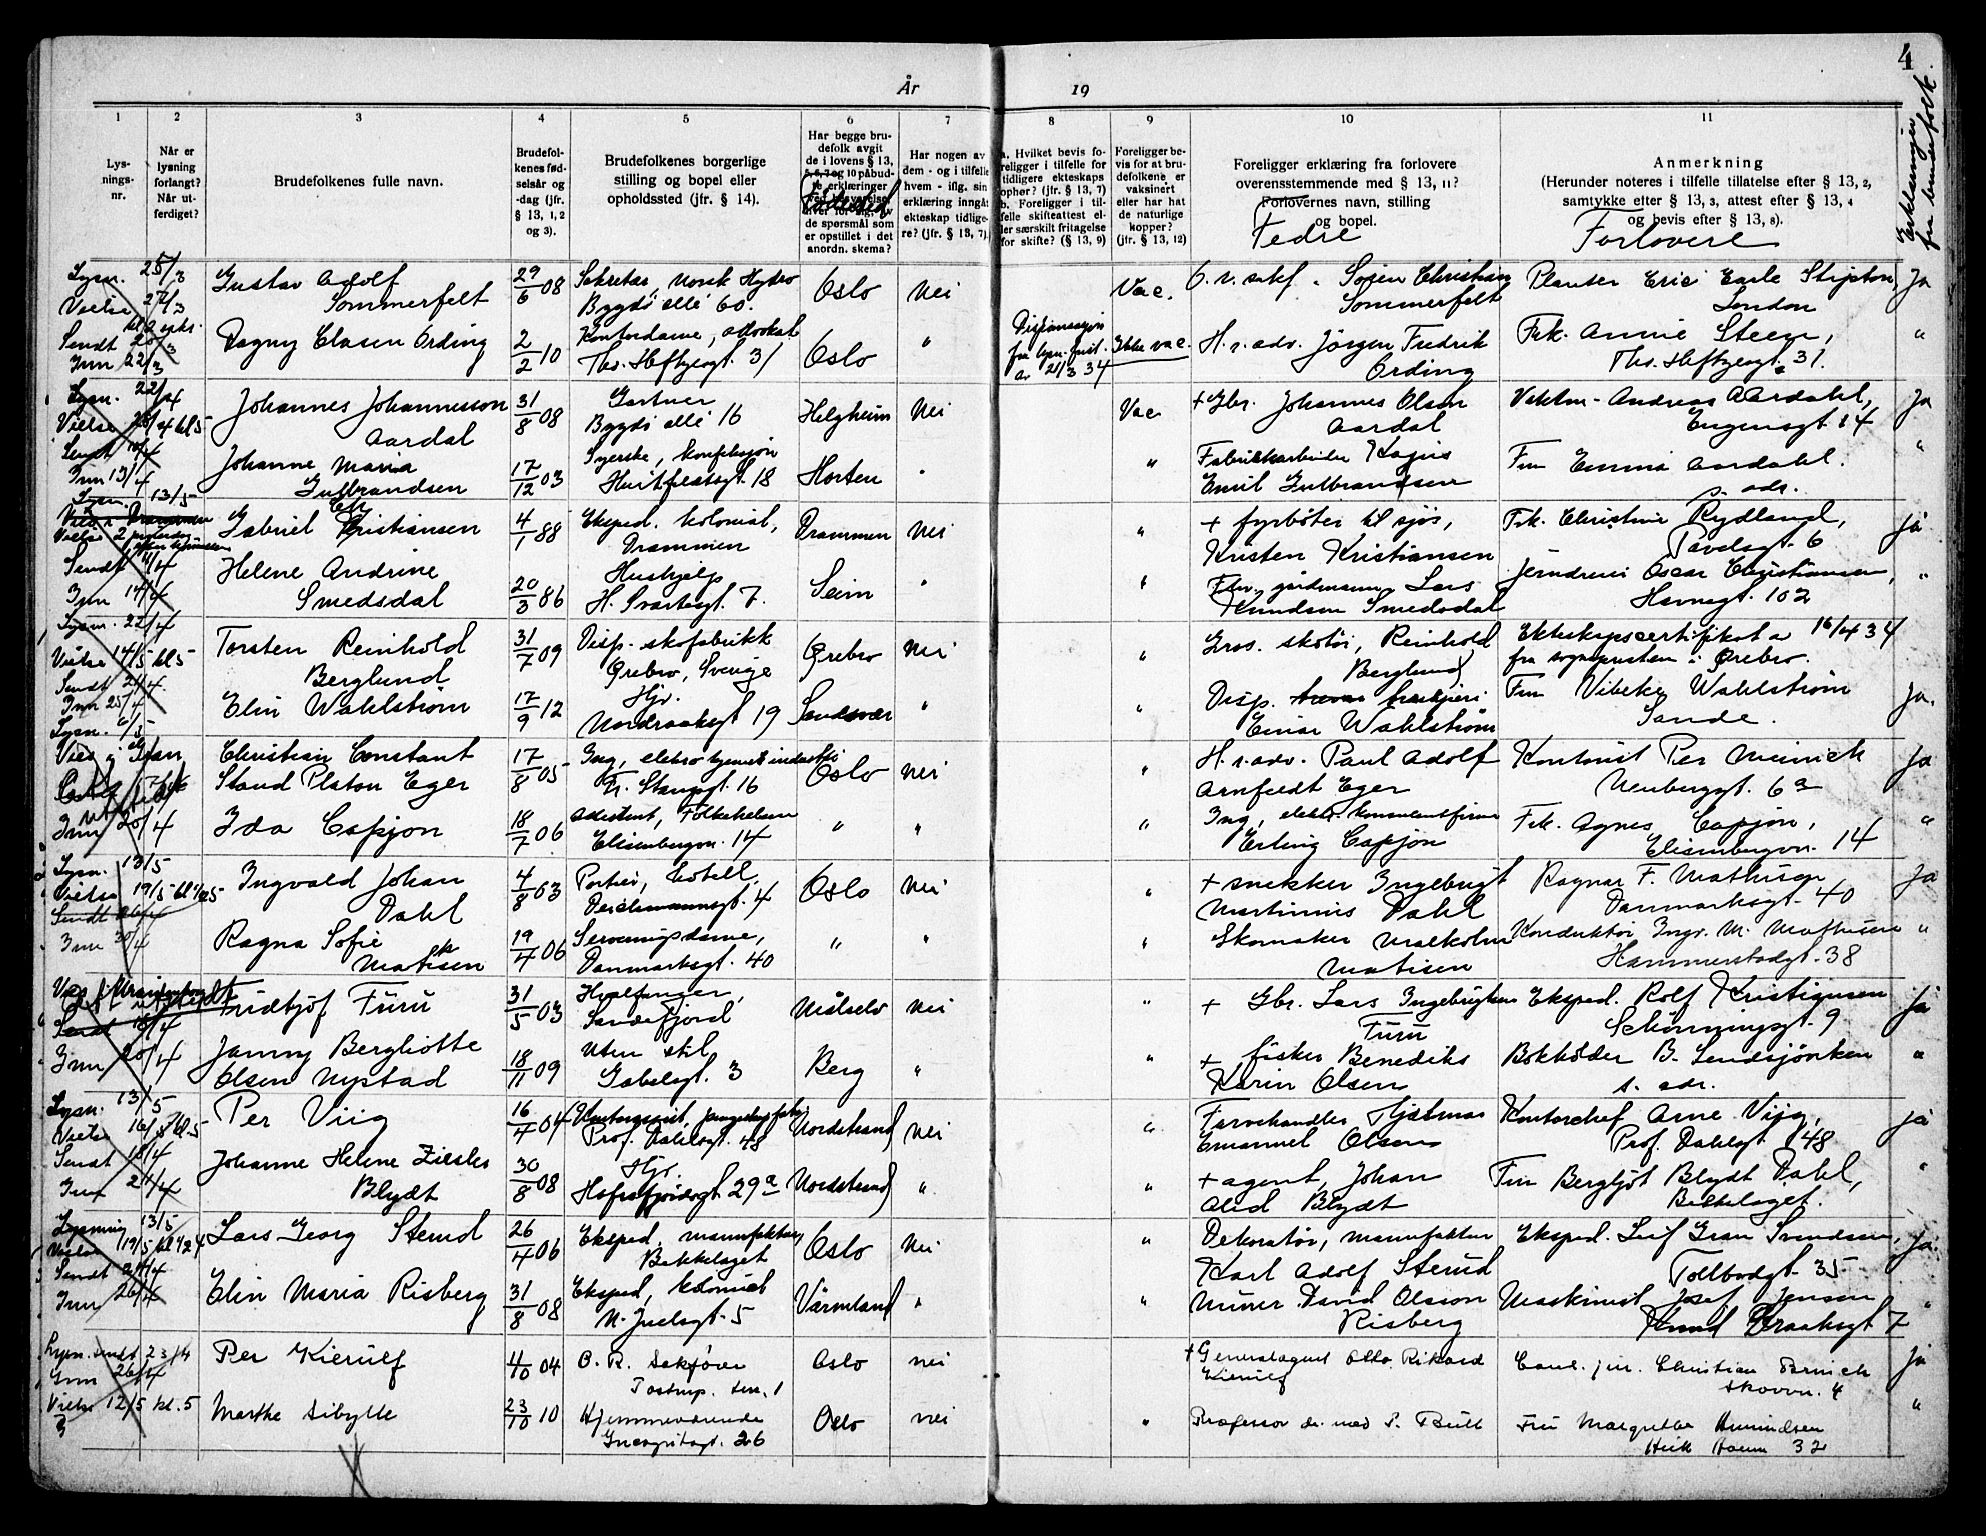 4
År
19
Erklæringer fra brudefolk.
1
2
3
4
5
6
7
8
9
10
11
Lysnings-nr.
Når er lysning forlangt? Når utferdiget?
Brudefolkenes fulle navn.
Brudefolkenes fødselsår og -dag (jfr. § 13, 1, 2 og 3).
Brudefolkenes borgerlige stilling og bopel eller opholdssted (jfr. § 14).
Har begge brudefolk avgit de i lovens § 13,
Fødested
de spørsmål som er opstillet i det anordn. skema?
Har nogen av dem - og i tilfelle hvem - iflg. sin erklæring inngåt ekteskap tidligere? (jfr. § 13, 7).
a. Hvilket bevis foreligger i tilfelle for tidligere ekteskaps ophør? (jfr. § 13, 7)
b. Foreligger i tilfelle skifteattest eller særskilt fritagelse for skifte? (§ 13, 9)
Foreligger bevis for at brudefolkene er vaksinert eller har hat de naturlige kopper? (jfr. § 13, 12)
Foreligger erklæring fra forlovere overensstemmende med § 13, 11?
Forlovernes navn, stilling og bopel.
Fedre
Anmerkning
(Herunder noteres i tilfelle tillatelse efter § 13, 2, samtykke efter § 13, 3, attest efter § 13, 4 og bevis efter § 13, 8).
Forlovere
Lysn. 25/3
Gustav Adolf Sommerfelt
29/6 08
Sekretær, Norsk Hydro Bygdö allé 60.
Oslo
Nei
Vac.
O.r.sakf. Sören Christian Sommerfelt
Planter Eric Earle Stipton, London
Ja
Vielse 27/3
Sendt 20/3
Inn 22/3
Dagny Clasen Ording
2/2 10
Kontordame, advokat Ths. Heftyesgt. 31
Oslo
"
Dispensasjon fra lysn. frist. av 21/3 34
Ikke vac.
H.r.adv. Jörgen Fredrik Ording
Frk. Annie Steen, Ths. Heftyesgt. 31.
"
Lysn. 22/4
Vielse 28/4 kl 5
Johannes Johannesson Aardal
31/8 08
Gartner Bygdö allé 16
Helgheim
Nei
Vac
+ Gbr. Johannes Olsen Aardal
Vaktm. Andreas Aardahl, Eugensgt 14
Ja
Sendt 10/4
Inn 13/4
Johanne Maria Gulbrandsen
17/12 03
Syerske, konfeksjon Huitfeldtsgt. 18
Horten
"
"
Fabrikkarbeider Kajus Emil Gulbrandsen
Fru Emma Aardahl. s. adr.
"
Lysn. 13/5
Gabriel Kristiansen
Chr
4/1 88
Eksped. kolonial, Drammen
Drammen
Nei
"
+ fyrböter til sjös, Kristen Kristiansen
Frk. Christine Rydland, Pavelsgt. 6
Ja
Sendt 11/4
Inn 14/4
Helene Andrine Smedsdal
20/3 86
Hushjelp H. Svartesgt. 7.
Seim
"
"
Fhv. gårdmann Lars Knudsen Smedsdal
Jerndreier Oscar Christiansen, Havnegt. 102
"
Lysn. 22/4
Vielse 14/5 kl 5
Torsten Reinhold Berglund
31/7 09
Disp. skofabrikk Örebro, Sverige
Örebro
Nei
"
Gros. skotöi, Reinhold Berglund
Ekteskapscertifikat av 16/4 34 fra sognepresten i Örebro.
Sendt 21/4.
Inn 25/4
Elin Wahlström
17/9 12
Hjv. Nordraaksgt 19
Sandsvær
"
"
Disp. Einar Wahlström
Fru Vibeke Wahlström Sande.
Ja.
Lysn. 6/5
Vies i Gran
Christian Constant Stand Platou Eger
17/8 05
Ing, elektro kjemisk industri Fr. Stangsgt. 16
Oslo
Nei
"
H.r.adv. Paul Adolf Arnfeldt Eger
Kontorist Per Meinich Neubergsgt. 6a
Ja
Inn 20/4
Ida Capjon
18/7 06
Assistent, Folkehelsen Elisenbergvn. 14
"
"
"
Ing, elektr. konsulentfirma Erling Capjon
Frk. Agnes Capjon, Elisenbergvn. 14
"
Lysn. 13/5
Vielse 19/5 kl 1/2 5
Ingvald Johan Dahl
4/8 03
Portier, hotell, Deichmannsgt. 4
Oslo
Nei
"
+ snekker Ingebrigt Martinius Dahl
Ragnar F. Mathisen Danmarksgt. 40
Ja
Sendt 26/4
Inn 30/4
Ragna Sofie Matisen
19/4 06
Serveringsdame, Danmarksgt. 40
"
"
"
Skomaker Malkolm Matisen
Konduktör Ingv. M. Mathisen Hammerstadgt. 38
"
Fridtjof Furu
31/5 03
Hvalfanger, Sandefjord
Målselv
Nei
"
+ Gbr. Lars Ingebrigtsen Furu
Eksped. Rolf Kristiansen Schönningsgt. 9
Ja
Sendt 18/4
Inn 20/4
Janny Bergliotte Olsen Nystad
18/11 09
Uten stil Gabelsgt. 3
Berg
"
"
+ fisker Benediks Karin Olsen
Bokholder B. Sendsjönken s. adr.
"
Lysn. 13/5
Per Viig
16/4 04
Prof. Dahlsgt. 48
Nordstrand
Nei
"
Farvehandler Hjalmar Emanuel Olsen
Kontorchef Arne Viig, Prof. Dahlsgt 48
Ja
Sendt 18/4
Inn 21/4
Johanne Helene Ziesler Blydt
30/8 08
Hjv. Hafrsfjordsgt 29a
Nordstrand
"
"
+ agent, Johan Alid Blydt
Fru Bergljot Blydt Dahl, Bekkelaget.
"
Lysning 13/5
Vielse 19/5 kl 1/2 4
Lars Georg Sterud
26/4 06
Eksped. manufaktur, Bekkelaget
Oslo
Nei
"
Dekoratör, manufaktur Karl Adolf Sterud
Eksped. Leif Gran Svendsen, Tollbodgt. 35
Ja.
Sendt 21/4
Inn 26/4
Elin Maria Risberg
31/8 08
Eksped, kolonial N. Juelsgt. 5
Värmland
"
"
Murer David Olsson Risberg
Maskinist Josef Jensen Knud Graahsgt 7
"
Lysn. sendt 23/4
Inn 26/4
Per Kierulf
4/10 04
O. R. Sakförer Tostrup. terr. 1
Oslo
nei
+ Generalagent Otto Rikard Kierulf
Cand. jur. Christian Brinch Skovvn. 4
Ja
Vielse 12/5 kl. 5
Marthe Sibylle
23/10 10
Hjemmeværende Incognitogt. 26
Oslo
nei
"
Professor dr. med P. Bull
Fru Margrethe Amundsen
"